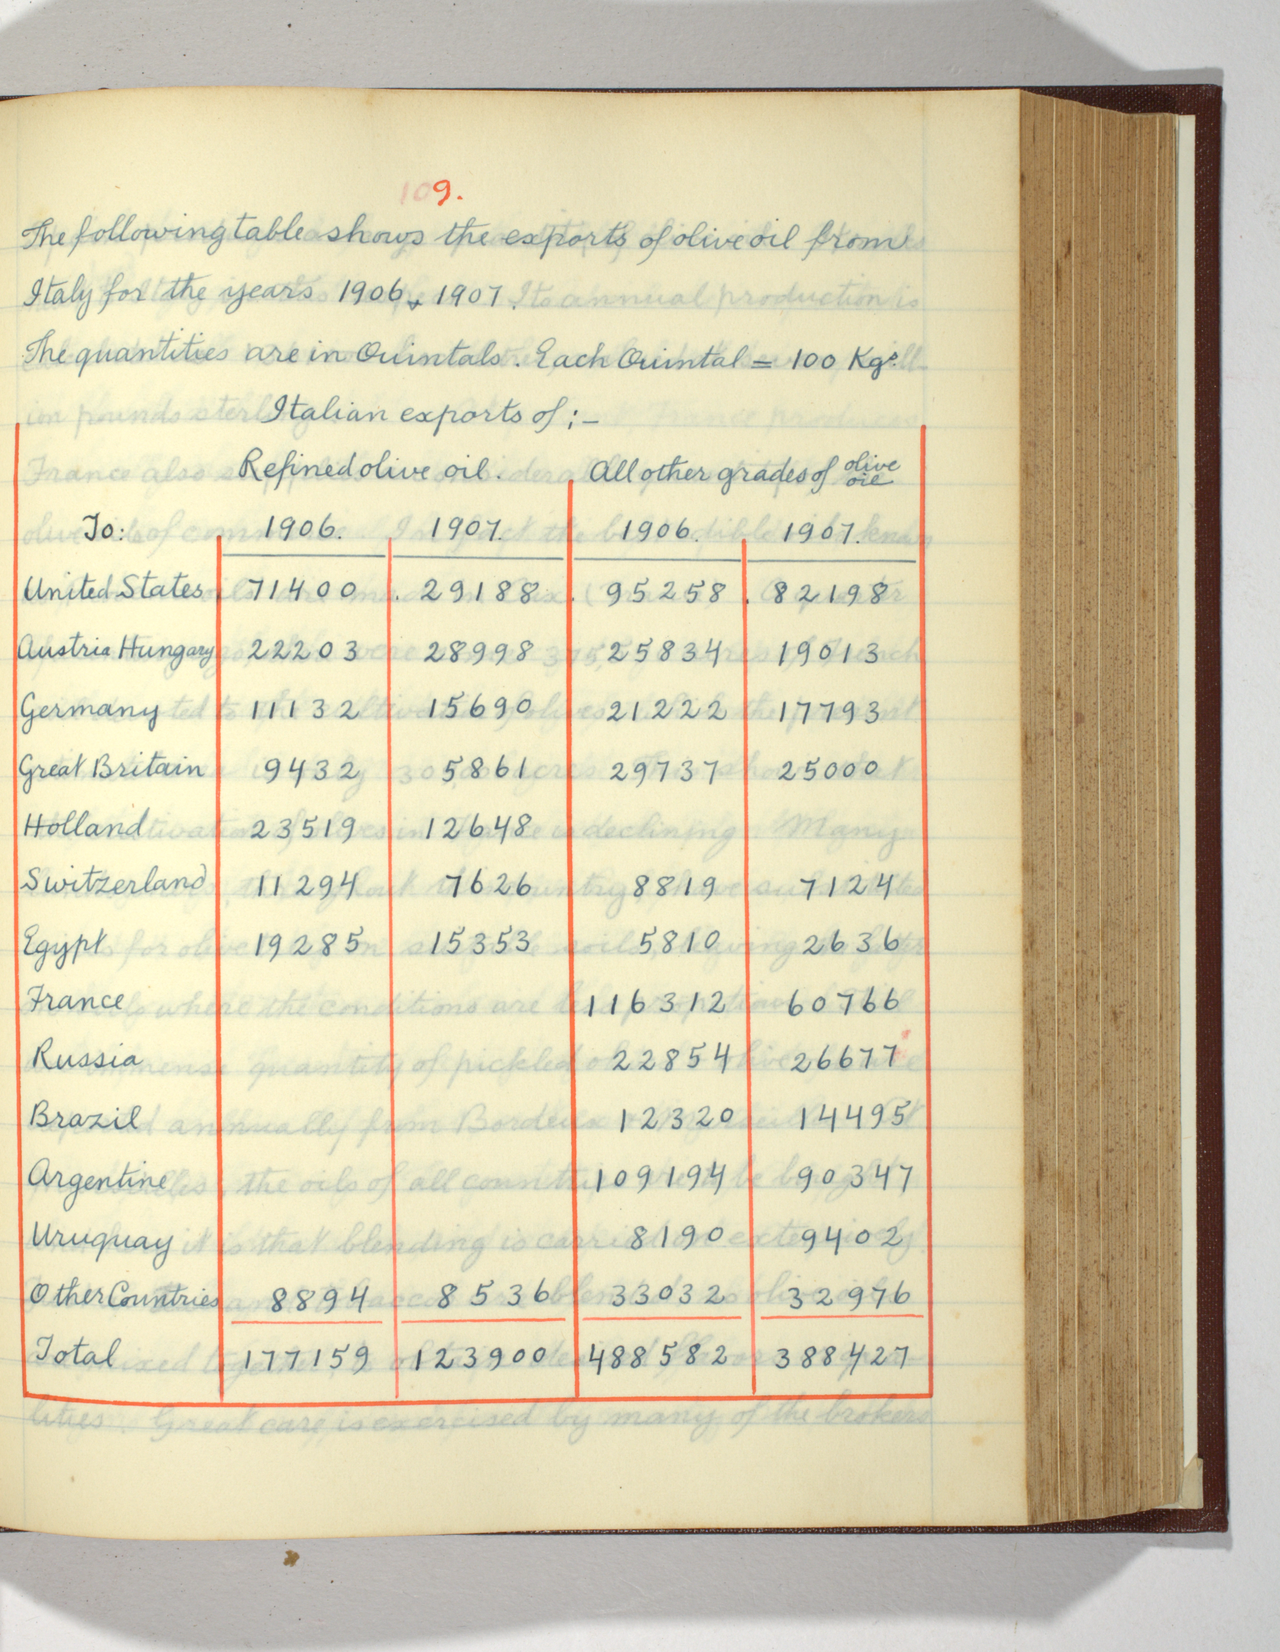 109.
The following table shows the exports of olive oil from
Italy for the years 1906 & 1907.
The quantities are in Quintals. Each Quintal = 100 Kgs.
Italian exports of ;—
Refined olive oil. All other grades of olive oil
To: 1906. 1907. 1906. 1907.
United States 71400 29188 95258 82198
Austria Hungary 22203 28998 25834 19013
Germany 11132 15690 21222 17793
Great Britain 9432 5861 29737 25000
Holland 23519 12648
Switzerland 11294 7626 8819 7124
Egypt 19285 15353 5810 2636
France 116312 60766
Russia 22854 26677
Brazil 12320 14495
Argentine 109194 90347
Uruguay 8190 9402
Other Countries 8894 8536 33032 32976
Total 177159 123900 488582 388427